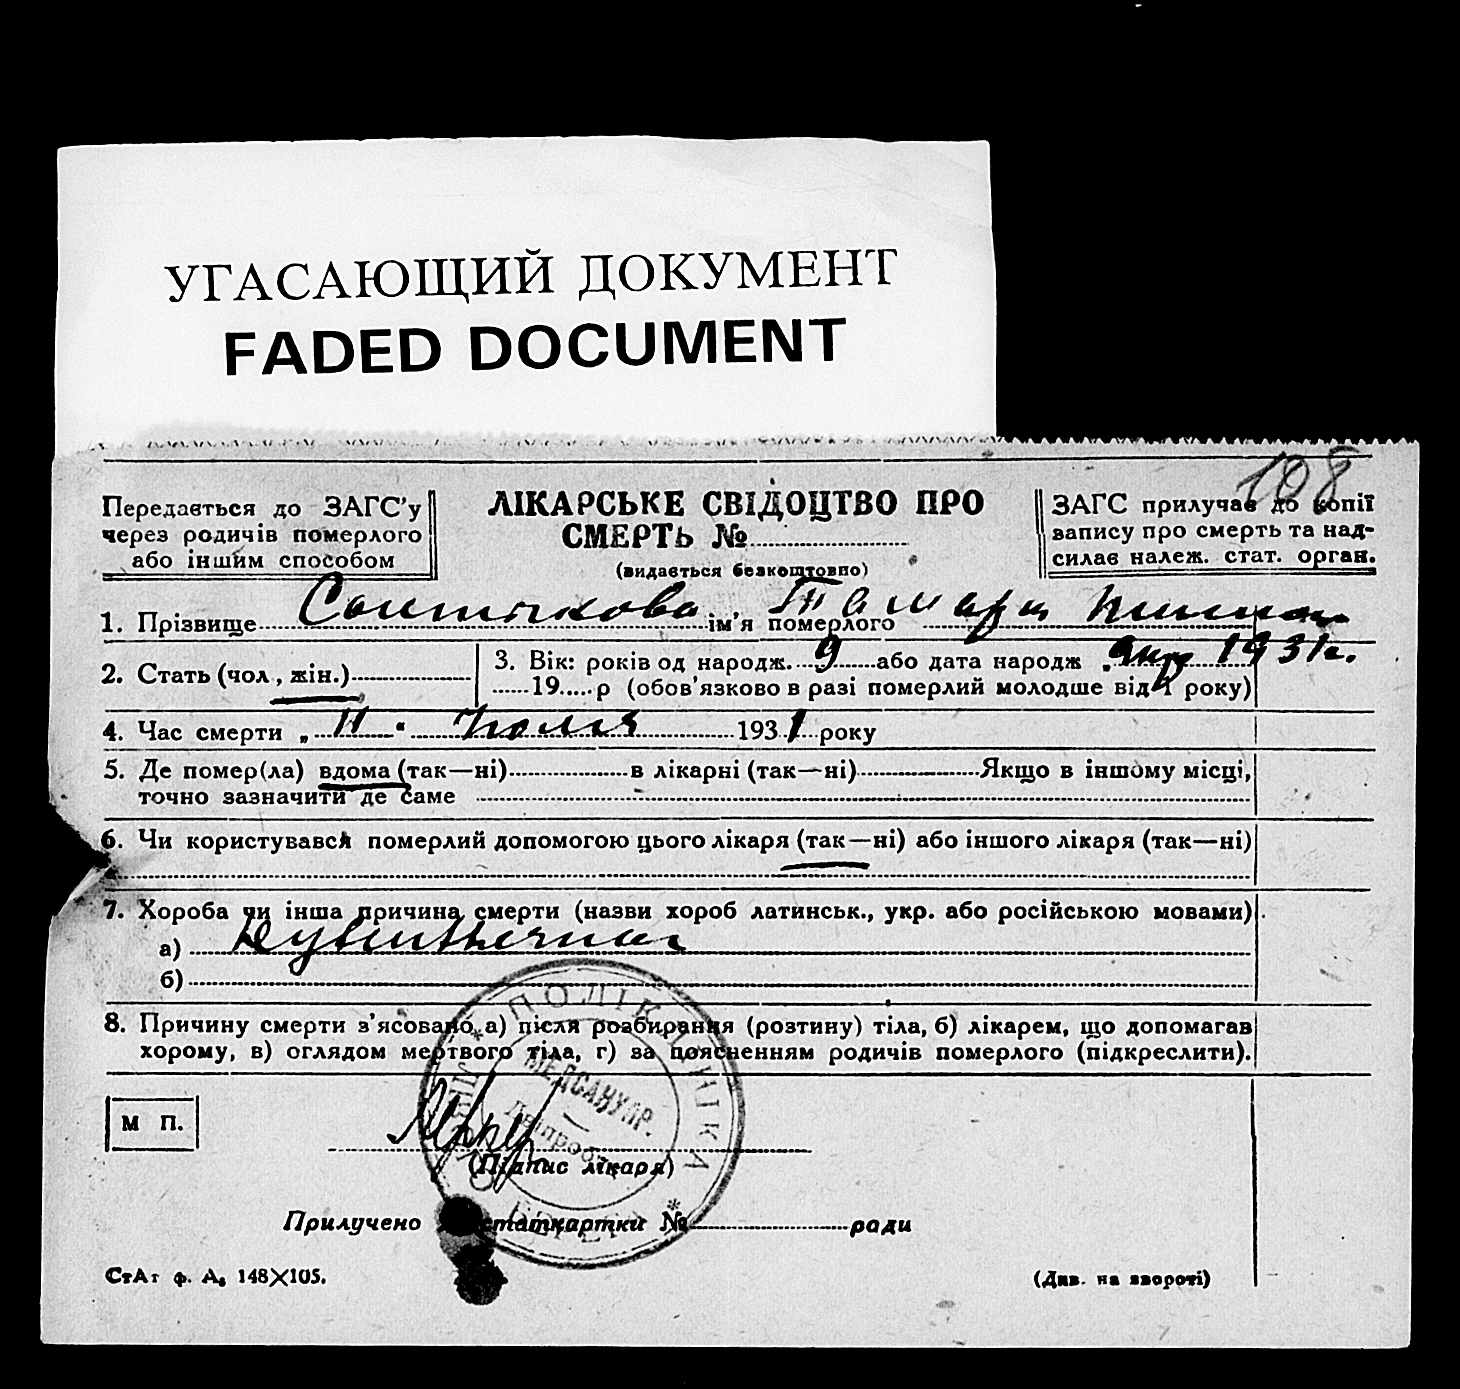 УГАСАЮЩИЙ ДОКУМЕНТ
FADED DOCUMENT
108
Передається до ЗАГС'у
через родичів померлого
або іншим способом
ЛІКАРСЬКЕ СВІДОЦТВО ПРО
СМЕРТЬ №
(видається безкоштовно)
ЗАГС прилучає до копії
запису про смерть та над-
силає належ. стат. орган.
1. Прізвище ім'я померлого Тамара
2. Стать (чол., жін.)
3. Вік: років од народж. 9 або дата народж 1931 г.
19 р (обов'язково в разі померлий молодше від 1 року)
4. Час смерти „ 11 " Июля 1931 року
5. Де помер(ла) вдома (так—ні) в лікарні (так—ні) Якщо в іншому місці,
точно зазначити де саме
6. Чи користувався померлий допомогою цього лікаря (так—ні) або іншого лікаря (так—ні)
7. Хороба чи інша причина смерти (назви хороб латинськ., укр. або російською мовами)
а)
б)
8. Причину смерти з'ясовано а) після розбирання (розтину) тіла, б) лікарем, що допомагав
хорому, в) оглядом мертвого тіла, г) за поясненням родичів померлого (підкреслити).
ПОЛІКЛІНІКА
МЕДСАНУПР.
М П.
(Підпис лікаря)
Прилучено статкартки № ради
СтАт ф. А₆ 148×105.
(Див. на звороті)